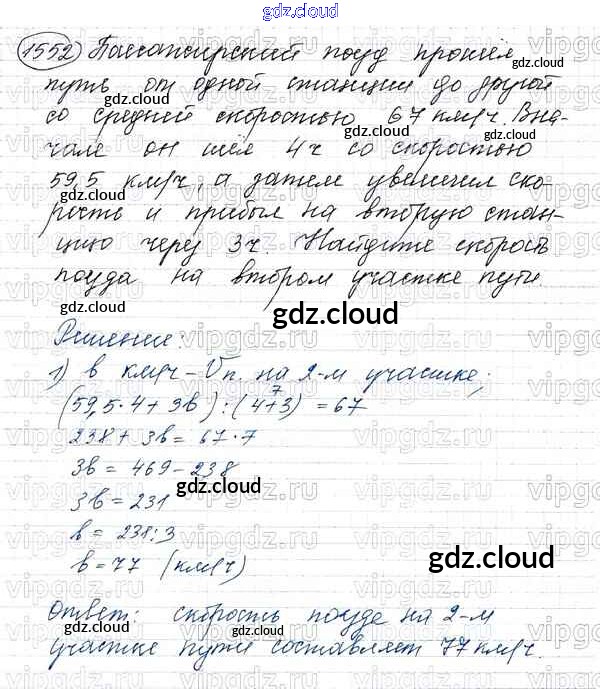 gdz.cloud
1552) Пассажирский поезд прошёл
путь от одной станции до другой
со средней скоростью 67 км/ч. Вна-
чале он шёл 4ч со скоростью
59,5 км/ч, а затем увеличил ско-
рость и прибыл на вторую стан-
цию через 3ч. Найдите скорость
поезда на втором участке пути
gdz.cloud
Решение:
1) в км/ч – Vп. на 2-м участке;
7
(59,5·4 + 3в) : (4+3) = 67
238 + 3в = 67·7
3в = 469 – 238
gdz.cloud
3в = 231
в = 231:3
gdz.cloud
в = 77 (км/ч)
Ответ: скорость поезда на 2-м
участке пути составляет 77 км/ч.